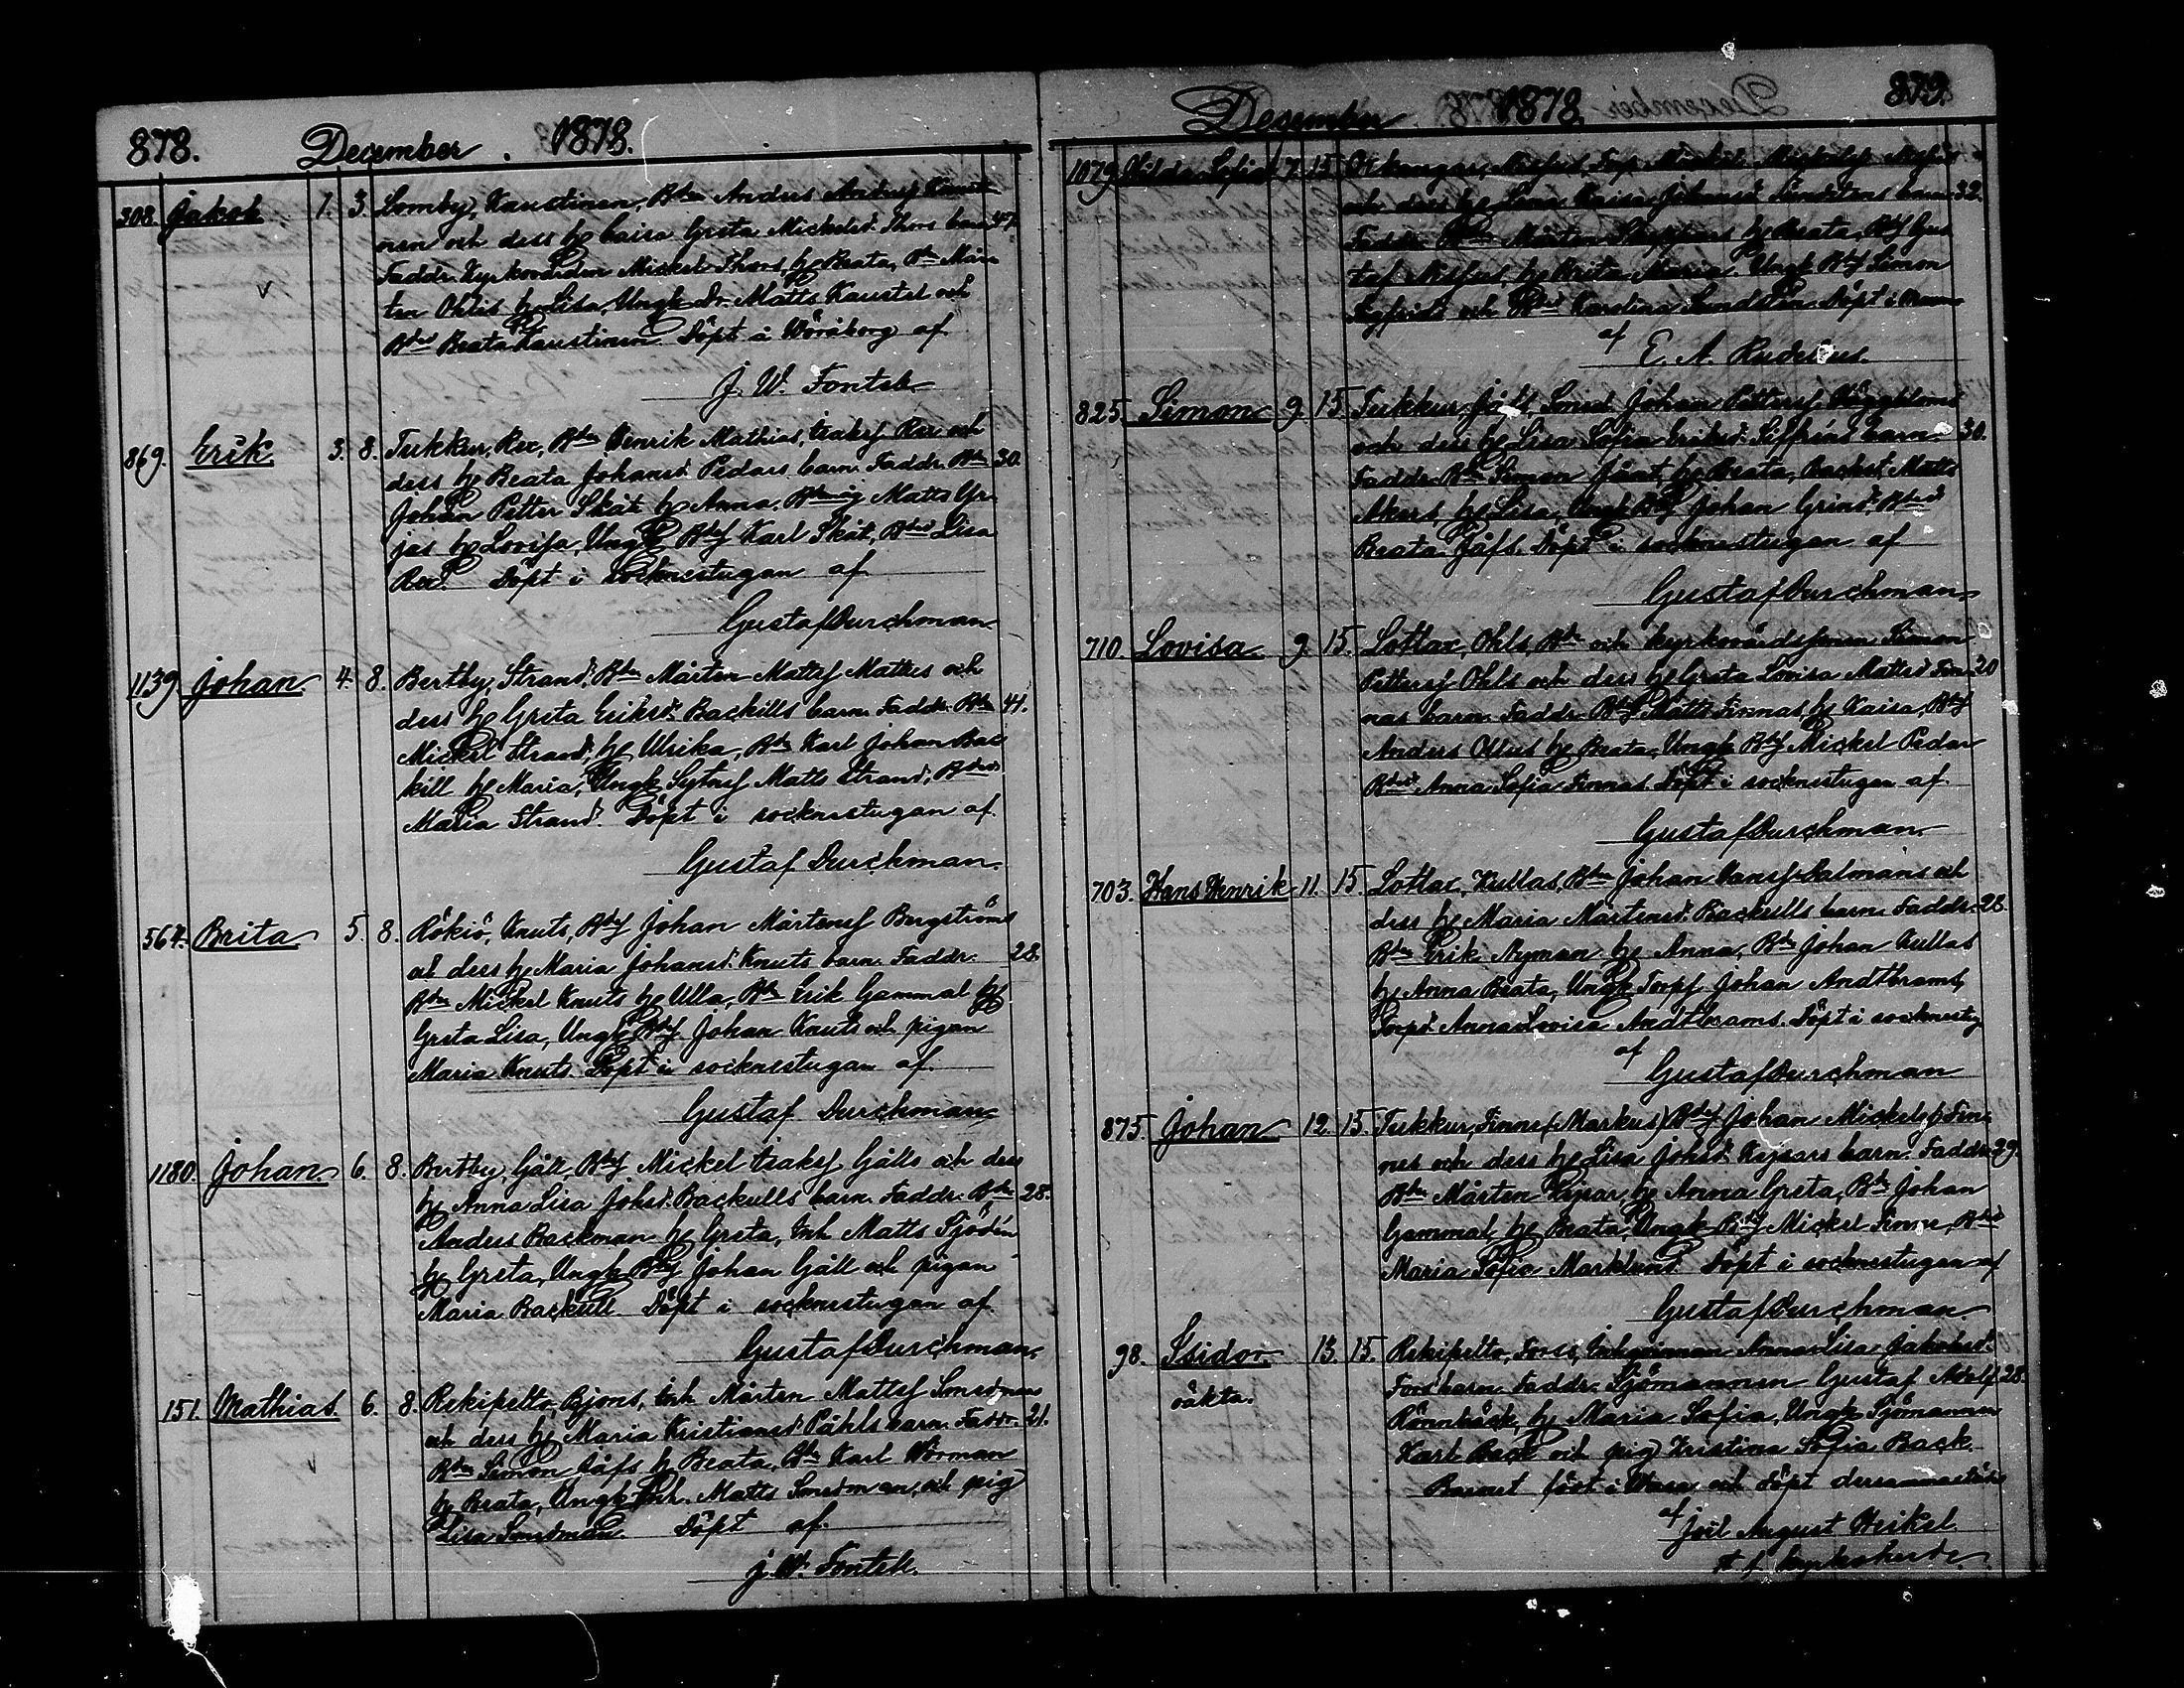 878. December. 1878.
308. Jakob 1. 3. Lomby, Kaustinen, Bdn Anders Andersf
nen och dess h. Caisa Greta Mickelsd. Thors barn 37.
Faddr. Kyrkovärden Mickel Thors, h. Beata, Bdn Mår-
ten Ohlis h. Lisa, Ungk. Dr. Matts Kaustel och
Bdsd Beata Kaustinen Döpt i Wöråborg af
J. W. Fontell
869. Erik. 3. 8. Tukkur, Rex, Bdn Henrik Mathias Isaksf Rex och
dess h. Beata Johansd. Pedars barn. Faddr. Bdn 30.
Johan Petter Skat h. Anna, Matts Gre-
jas h. Lovisa, Ungk. Bdsf Karl Skat, Bdsd Lisa
Rex. Döpt i socknestugan af
Gustaf Durchman
1139 Johan 4. 8. Bertby, Strand, Bdn Mårten Mattsf Mattus och
dess h. Greta Eriksd. Backills barn. Faddr. Bdn 41.
Mickel Strand, h. Ulrika, Bdn Karl Johan Bac-
kill h. Maria, Ungk. Sytnsf Matts Strand, Bdsd
Maria Strand. Döpt i socknestugan af
Gustaf Durchman.
564. Brita 5. 8. Rökiö, Knuts, Bdsf Johan Mårtensf Bergströms
och dess h. Maria Johansd. Knuts barn. Faddr. 28.
Bdn Mickel Knuts h. Ulla, Bdn Erik Gammal h.
Greta Lisa, Ungk. Bdsf Johan Knuts och pigan
Maria Knuts. Döpt i socknestugan af
Gustaf Durchman
1180. Johan. 6. 8. Bertby, Gåll, Bdsf Mickel Isaksf Gålls och dess
h. Anna Lisa Johsd. Backulls barn. Faddr. Bdn 28.
Anders Backman h. Greta, Inh. Matts Sjödin
h. Greta, Ungk. Bdsf Johan Gåll och pigan
Maria Backull. Döpt i socknestugan af
Gustaf Durchman.
151. Mathias. 6. 8. Rekipelto, Bjons, Inh. Mårten Mattsf Smedmans
och dess h. Maria Kristiansd Påhls barn. Faddr. 21.
Bdn Simon Jåfs h. Beata, Bdn Karl Wörman
h. Beata, Ungk. Inh. Matts Smedman, och pig
Lisa Smedman Döpt af
J. W. Fontell.
December 1878. 879.
1079 Hilda Sofia 7. 15.
och dess h. Lena Kaisa Johansd Sundstens barn 32.
Faddr. Bdn Mårten h. Beata, Bdsf Gus-
taf h. Brita Maria. Ungk. Bdsf Simon
Sigfrids och Bdsd Karolina Sundsten. Döpt i
af
E. A. Rudelius.
825. Simon 9. 15. Tukkur, Jåfs, Smed Johan Pettersf Hägglund
och dess h. Lisa Sofia Eriksd. Siffrins barn. 30.
Faddr. Bdn Simon h. Beata, Matts
Akers, h. Lisa, Ungk. Bdsf Johan Grind. Bdsd
Beata Jåfs. Döpt i socknestugan af
Gustaf Durchman.
710. Lovisa 9. 15. Lottax, Ohls, Bdn och kyrkovärdsfmm Simon
Pettersf Ohls och dess h. Greta Lovisa Mattsd Fin- 20
nas barn. Faddr. Bdsf Matts Finnas, h. Kaisa, Bdsf
Anders h. Beata, Ungk. Bdsf Mickel Pedar
Bdsd. Anna Sofia Finnas. Döpt i socknestugan af
Gustaf Durchman.
703. Hans Henrik 11. 15. Lottax, Kullas, Bdn Johan Hansf Dalmans och
dess h. Maria Mårtensd. Backulls barn. Faddr. 28.
Bdn Erik Nyman h. Anna, Bdn Johan Kullas
h. Anna Beata, Ungk. Torpf Johan Andtbrams,
Torpd. Anna Lovisa Andtbrams. Döpt i socknestug
af
Gustaf Durchman
875. Johan 12. 15. Tukkur, Finne (Markus) Bdsf Johan Mickelsf Fin-
nes och dess h. Lisa Johsd. Kejsars barn. Faddr. 29.
Bdn Mårten Kejsar, h. Anna Greta, Bdn Johan
Gammal, h. Beata, Ungk. Bdsf Mickel Finne, Bdsd
Maria Sofia Marklund. Döpt i socknestugan af
Gustaf Durchman
98. Isidor. 13. 15. Rekipelto, Forss, Inhqvinnan Anna Lisa Jakobsd.
oäkta. Fors barn. Faddr. Sjömannen Gustaf Adolf 28.
Rönnbäck, h. Maria Sofia, Ungk. Sjömannen
Karl Back och pig. Kristina Sofia Back.
Barnet födt i Wasa och döpt dersammastädes
af Joel August Heikel
t. f. kyrkoherde